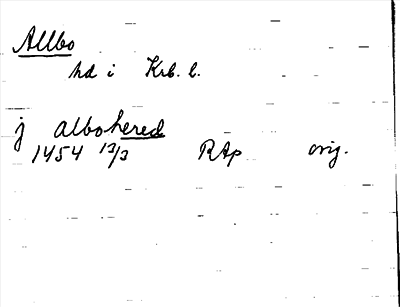 Allbo
hd i Krb. l.
j albohered
1454 13/3 RAp orig.